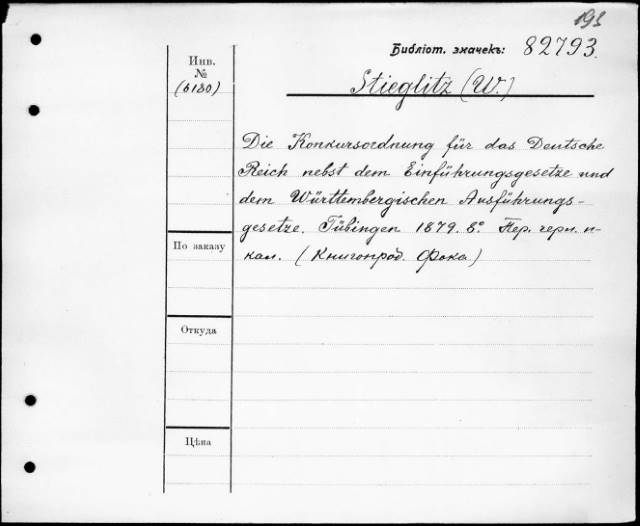 193
Библіот. значекъ: 82793.
Инв.
№
(6180)
Stieglitz (W.)
Die Konkursordnung für das Deutsche
Reich nebst dem Einführungsgesetze und
dem Württembergischen Ausführungs-
gesetze. Tübingen 1879. 8°. Пер. черн. п-
кал. (Книгопрод. Фока)
По заказу
Откуда
Цѣна